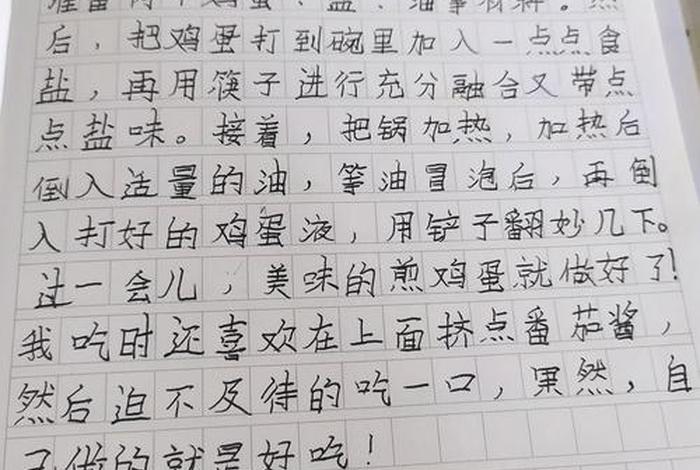 准备两个鸡蛋、盐、油等材料。然
后，把鸡蛋打到碗里加入一点点食
盐，再用筷子进行充分融合又带点
点盐味。接着，把锅加热，加热后
倒入适量的油，等油冒泡后，再倒
入打好的鸡蛋液，用铲子翻妙几下。
过一会儿，美味的煎鸡蛋就做好了！
我吃时还喜欢在上面挤点番茄酱，
然后迫不及待的吃一口，果然，自
己做的就是好吃！